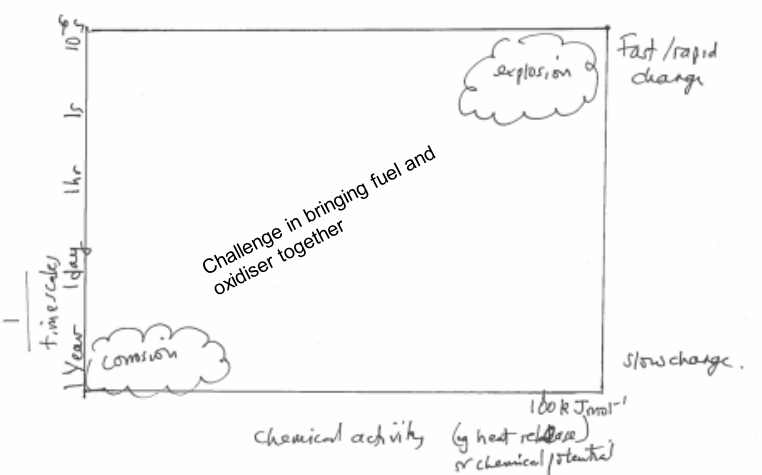 10⁻⁶s
1s
1hr
1day
1 Year
1
timescales
explosion
Fast/rapid
change
Challenge in bringing fuel and
oxidiser together
corrosion
slow change.
100kJmol⁻¹
Chemical activity (eg heat release)
or chemical potential